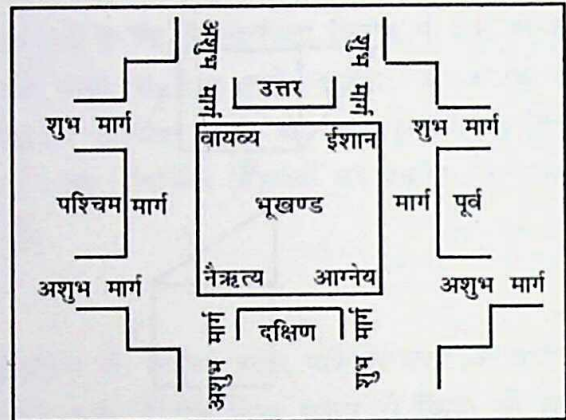 अशुभ मार्ग
शुभ मार्ग
उत्तर
शुभ मार्ग
शुभ मार्ग
वायव्य
ईशान
पश्चिम मार्ग
भूखण्ड
मार्ग
पूर्व
नैऋत्य
आग्नेय
अशुभ मार्ग
अशुभ मार्ग
अशुभ मार्ग
दक्षिण
शुभ मार्ग